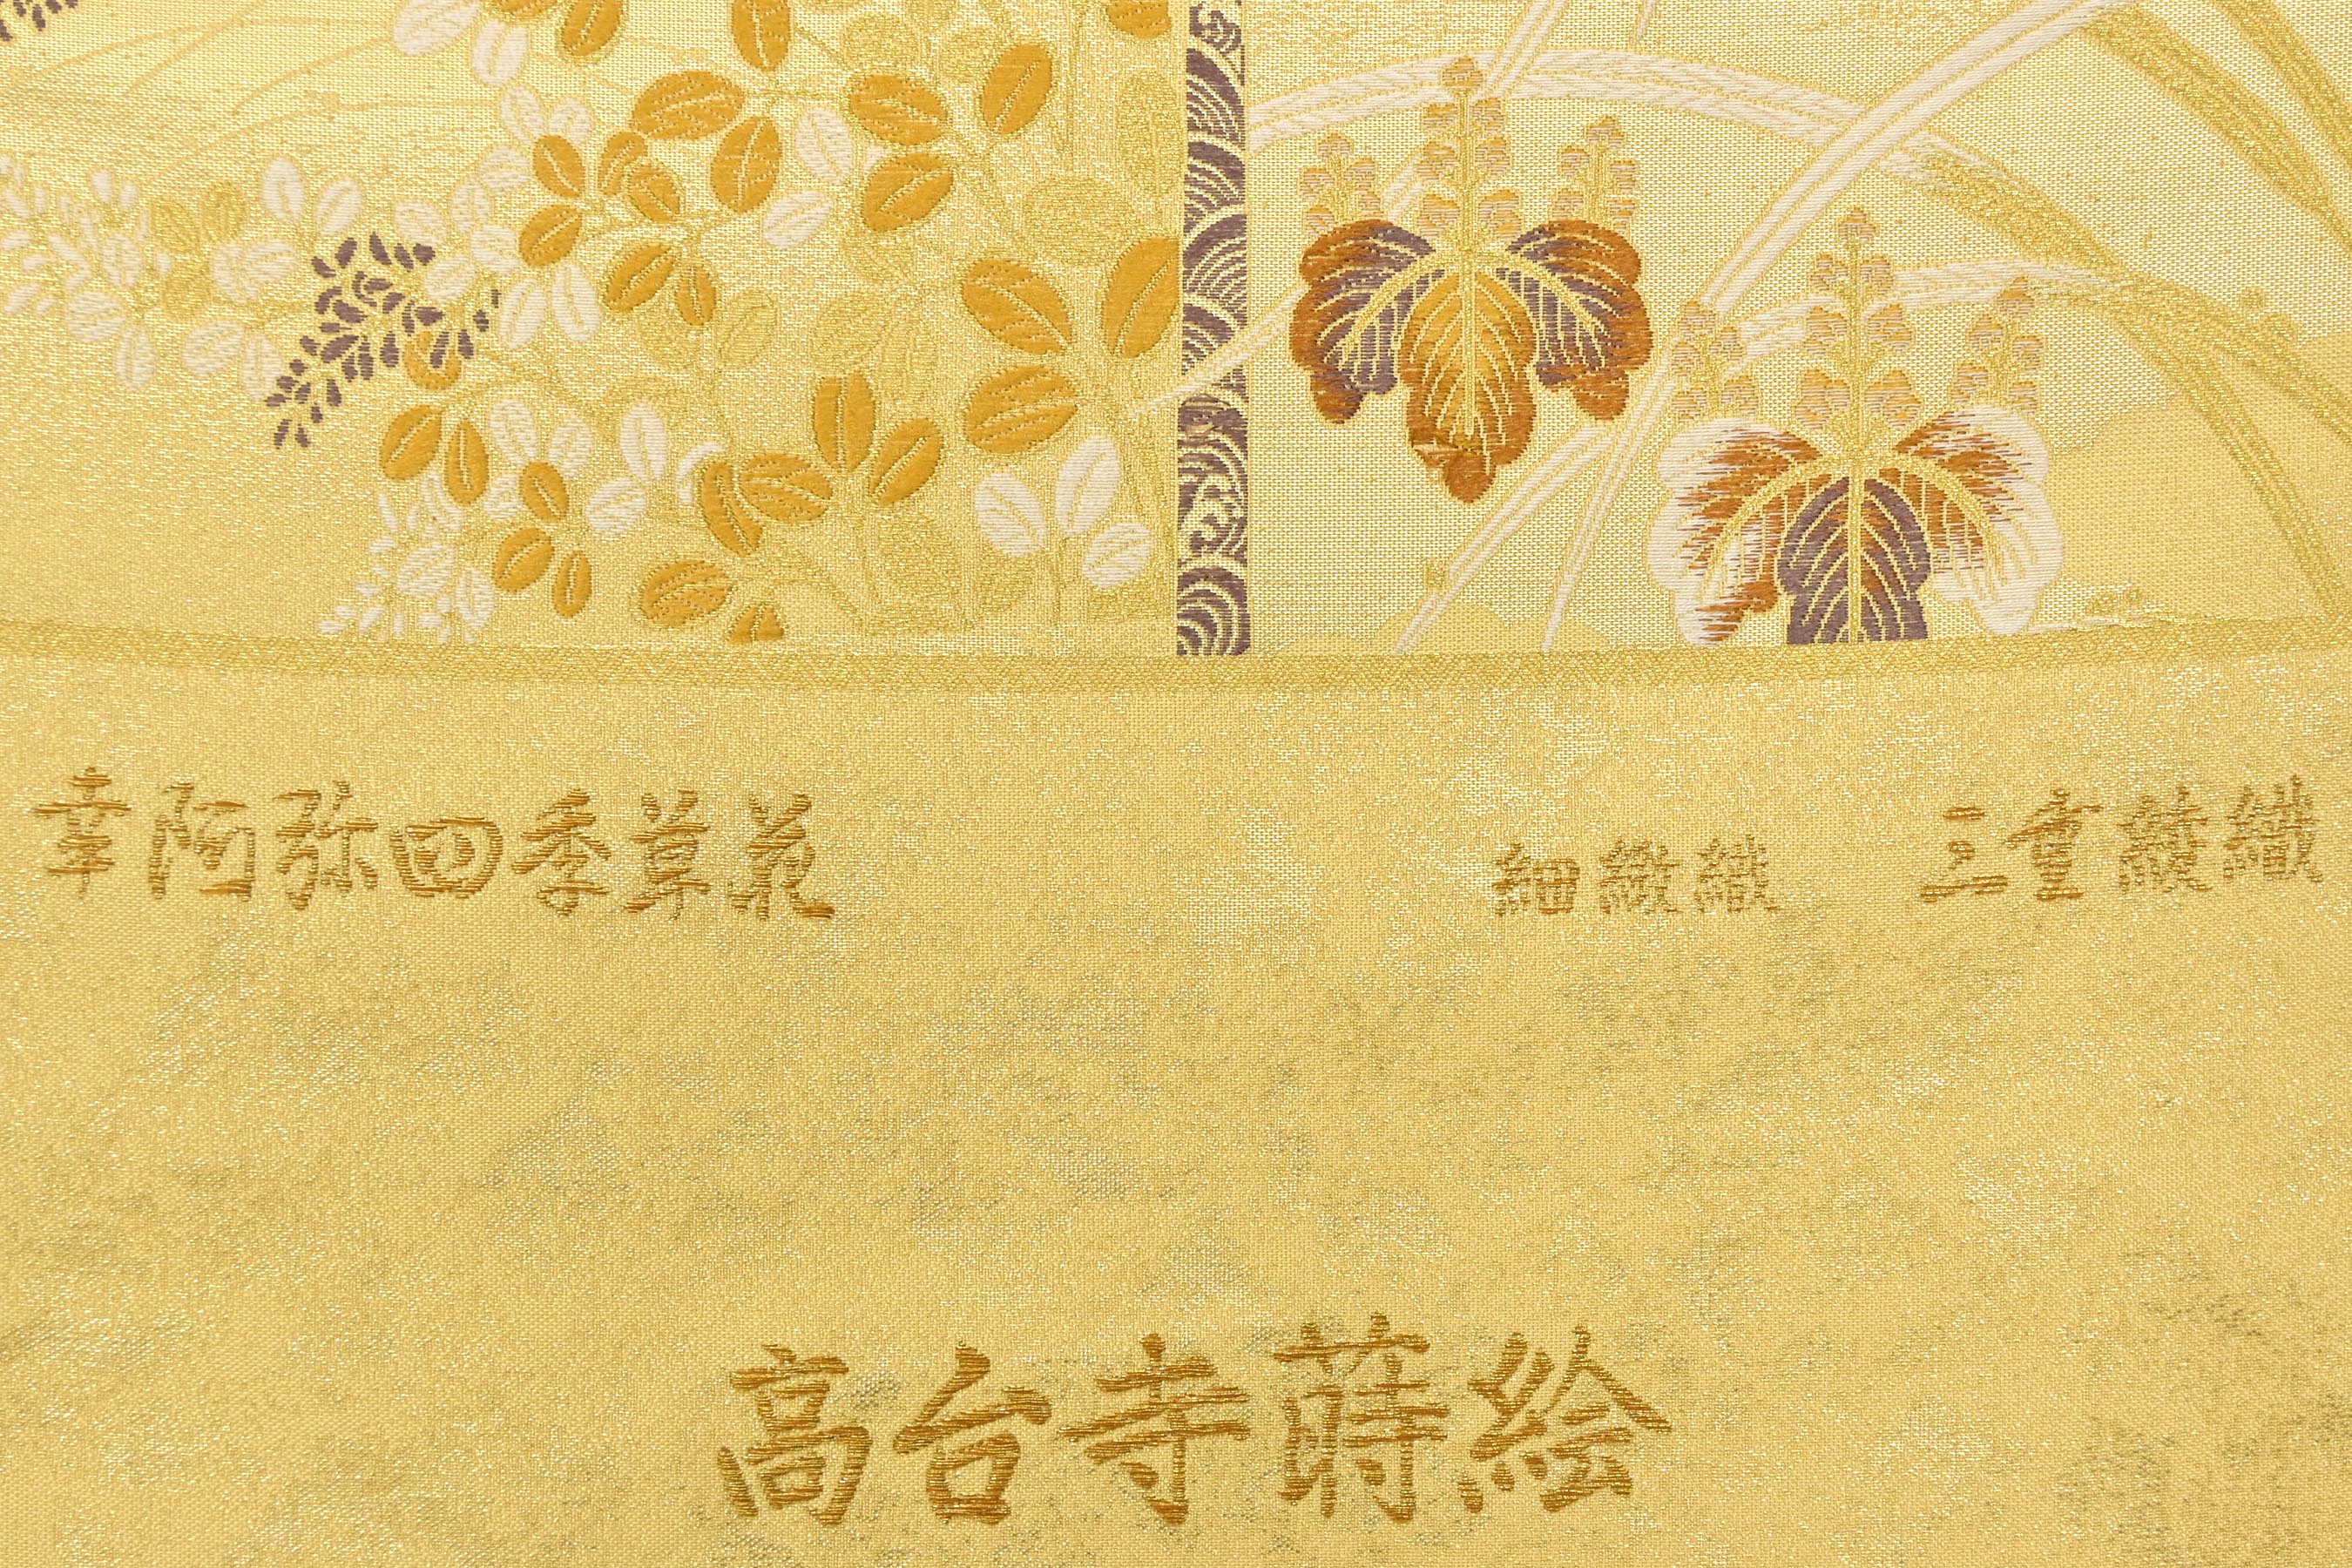 幸阿弥四季草花
細緻織
三重綾織
高台寺蒔絵